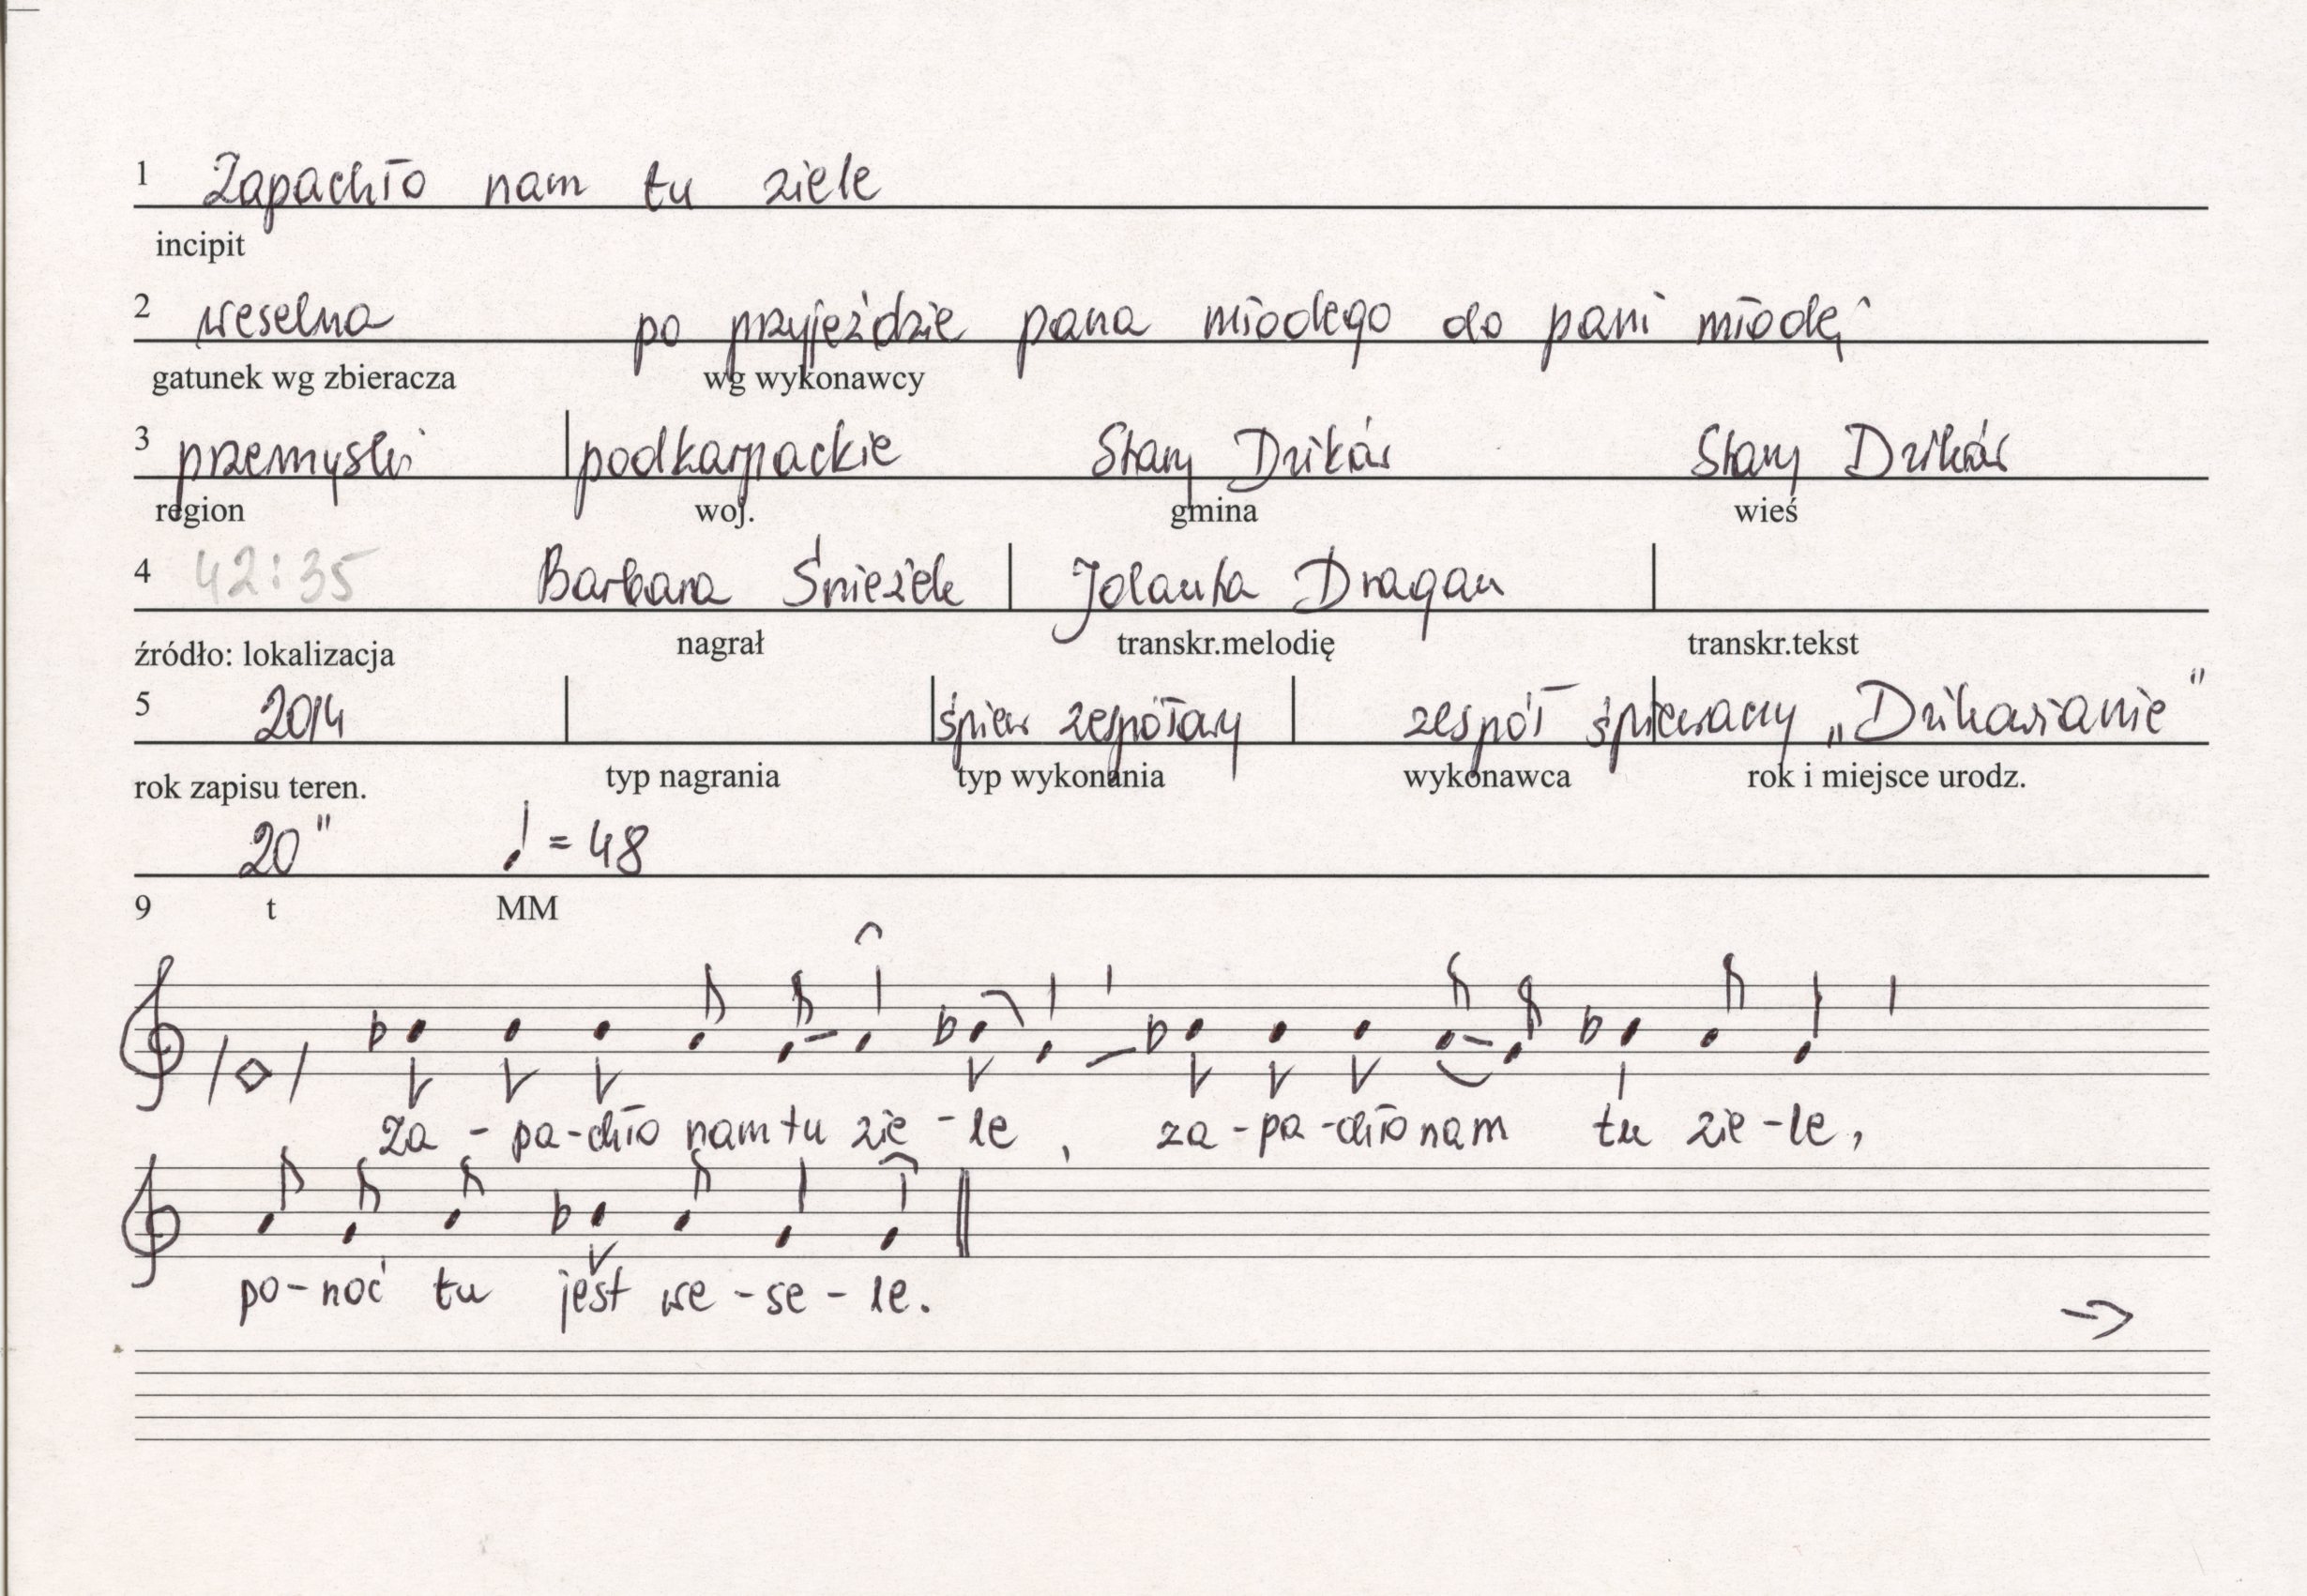 1 Zapachło nam tu ziele
incipit
2 weselna po przyjeździe pana młodego do pani młodej
gatunek wg zbieracza wg wykonawcy
3 przemyski podkarpackie Stary Dzików Stary Dzików
region woj. gmina wieś
4 42:35 Barbara Śnieżek Jolanta Dragan
źródło: lokalizacja nagrał transkr.melodię transkr.tekst
5 2014 śpiew zespołowy zespół śpiewaczy „Dzikowianie”
rok zapisu teren. typ nagrania typ wykonania wykonawca rok i miejsce urodz.
20" ♩ = 48
9 t MM
za - pa-chło nam tu zie - le , za - pa -chło nam tu zie - le ,
po - noć tu jest we - se - le.
→